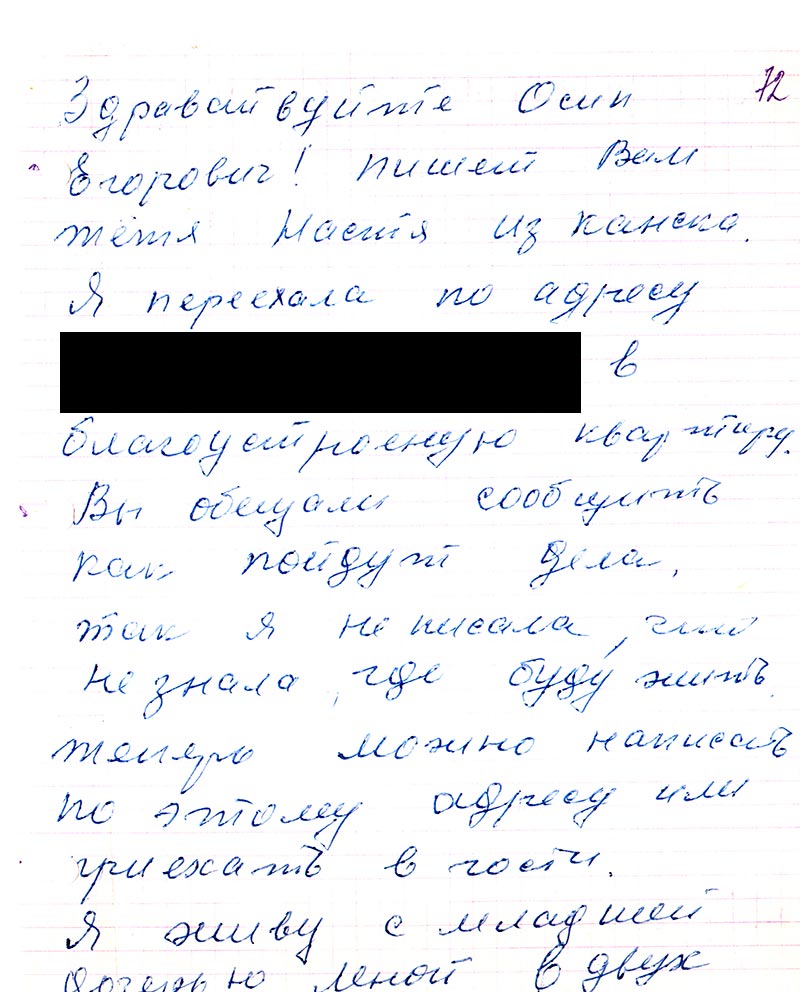 72
Здраваствуйте Осип
Егорович! пишет Вам
тётя Настя из канска.
Я переехала по адресу
в
благоустроеную квартиру.
Вы обещали сообщить
как пойдут дела,
так я не писала, что
не знала, где буду жить.
теперь можно написать
по этому адресу или
приехать в гости.
Я живу с младшей
дочерью Леной в двух